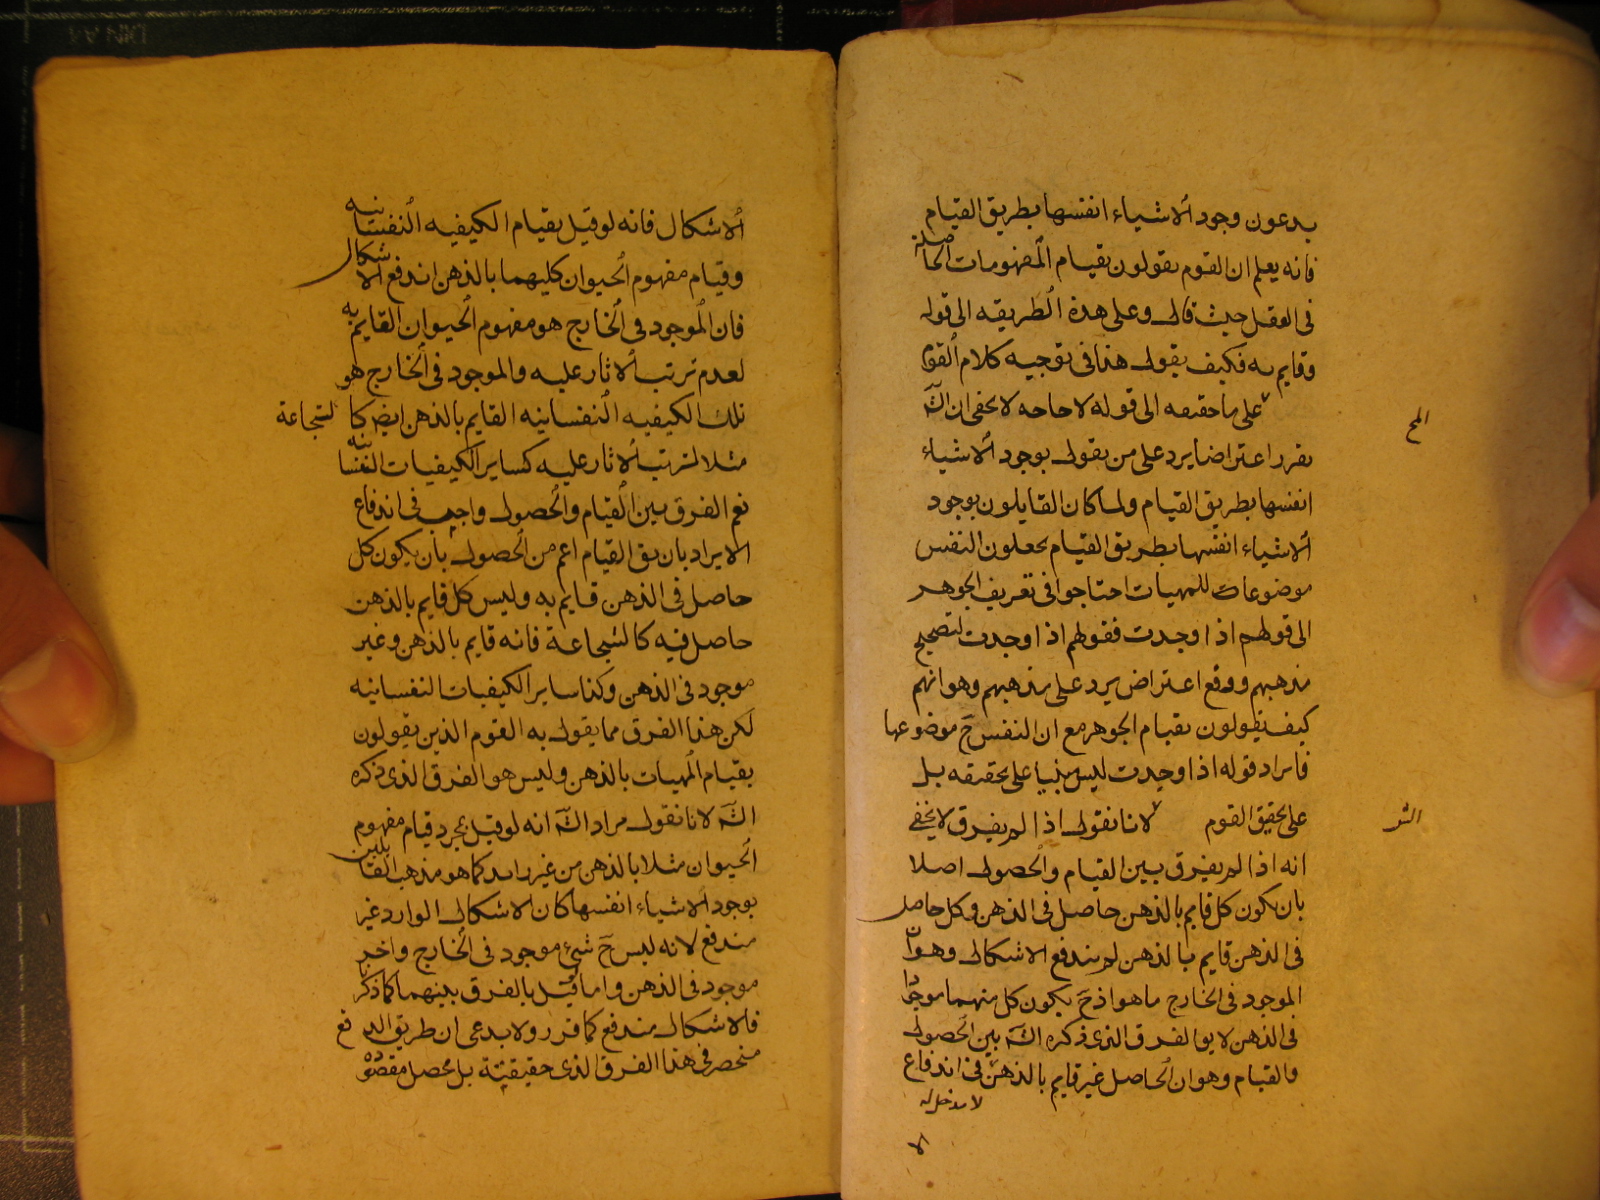 يدعون وجود الاشياء انفسها بطريق القيام
فانه يعلم ان القوم يقولون بقيام المفهومات الحاصلة
فى العقل حيث قال وعلى هذه الطريقه الى قوله
وقايم به فكيف يقول هذا فى توجيه كلام القوم
على ما حققه الى قوله لا حاجه لا يخفى ان الش
المح
يقرر اعتراضا يرد على من يقول بوجود الاشياء
انفسها بطريق القيام ولما كان القايلون بوجود
الاشياء انفسها بطريق القيام يجعلون النفس
موضوعات للمهيات احتاجوا فى تعريف الجوهر
الى قولهم اذا وجدت فقولهم اذا وجدت لتصحيح
مذهبهم ودفع اعتراض يرد على مذهبهم وهو انهم
كيف يقولون بقيام الجوهر مع ان النفس ح موضوعها
فايراد قوله اذا وجدت ليس بنيا على تحقيقه بل
على تحقيق القوم لانا نقول اذا لم يفرق لا يخفى
انه اذا لم يفرق بين القيام والحصول اصلا
بان يكون كل قايم بالذهن حاصل فى الذهن وكل حاصل
فى الذهن قايم بالذهن لم يندفع الاشكال وهو ان
الموجود فى الخارج ما هو اذ ح يكون كل منهما موجودا
فى الذهن لا يق الفرق الذى ذكره الش بين الحصول
والقيام وهو ان الحاصل غير قايم بالذهن فى اندفاع
لا مدخل له
الا
الاشكال فانه لو قيل بقيام الكيفيه النفسانيه
وقيام مفهوم الحيوان كليهما بالذهن اندفع الاشكال
فان الموجود فى الخارج هو مفهوم الحيوان القايم به
لعدم ترتب الاثار عليه والموجود فى الخارج هو
تلك الكيفيه النفسانيه القايم بالذهن ايضا كالشجاعة
مثلا لترتب الاثار عليه كساير الكيفيات النفسانيه
نعم الفرق بين القيام والحصول واجب فى اندفاع
الايراد بان يق القيام اعم من الحصول بان يكون كل
حاصل فى الذهن قايم به وليس كل قايم بالذهن
حاصل فيه كالشجاعة فانه قايم بالذهن وغير
موجود فى الذهن وكذا ساير الكيفيات النفسانيه
لكن هذا الفرق مما يقول به القوم الذين يقولون
بقيام المهيات بالذهن وليس هو الفرق الذى ذكره
الش لانا نقول مراد الش انه لو قيل بمجرد قيام مفهوم
الحيوان مثلا بالذهن من غير زايد كما هو مذهب القايلين
بوجود الاشياء انفسها كان الاشكال الوارد غير
مندفع لانه ليس ح شئ موجود فى الخارج واخر
موجود فى الذهن واما قيل بالفرق بينهما كما ذكرنا
فالاشكال مندفع كما قرر ولا يدعى ان طريق الدفع
منحصر فى هذا الفرق الذى حقيقيتة بل محصل مقصوده